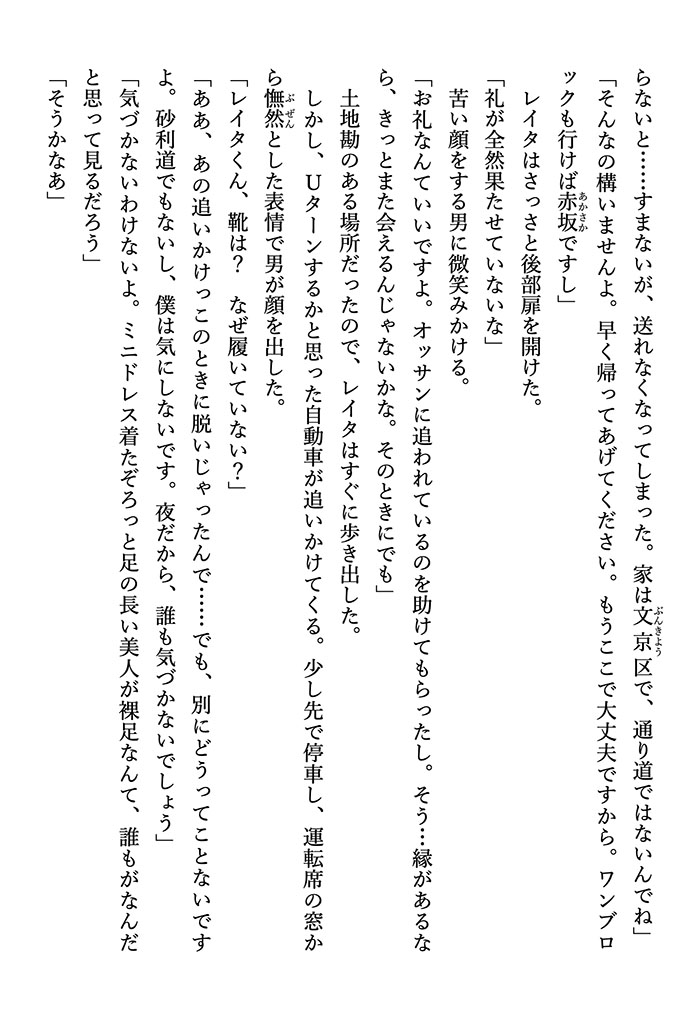 らないと……すまないが、送れなくなってしまった。家は文京区で、通り道ではないんでね」
「そんなの構いませんよ。早く帰ってあげてください。もうここで大丈夫ですから。ワンブロ
ックも行けば赤坂ですし」
　レイタはさっさと後部扉を開けた。
「礼が全然果たせていないな」
　苦い顔をする男に微笑みかける。
「お礼なんていいですよ。オッサンに追われているのを助けてもらったし。そう…縁があるな
ら、きっとまた会えるんじゃないかな。そのときにでも」
　土地勘のある場所だったので、レイタはすぐに歩き出した。
　しかし、Uターンするかと思った自動車が追いかけてくる。少し先で停車し、運転席の窓か
ら憮然とした表情で男が顔を出した。
「レイタくん、靴は？　なぜ履いていない？」
「ああ、あの追いかけっこのときに脱いじゃったんで……でも、別にどうってことないです
よ。砂利道でもないし、僕は気にしないです。夜だから、誰も気づかないでしょう」
「気づかないわけないよ。ミニドレス着たぞろっと足の長い美人が裸足なんて、誰もがなんだ
と思って見るだろう」
「そうかなあ」